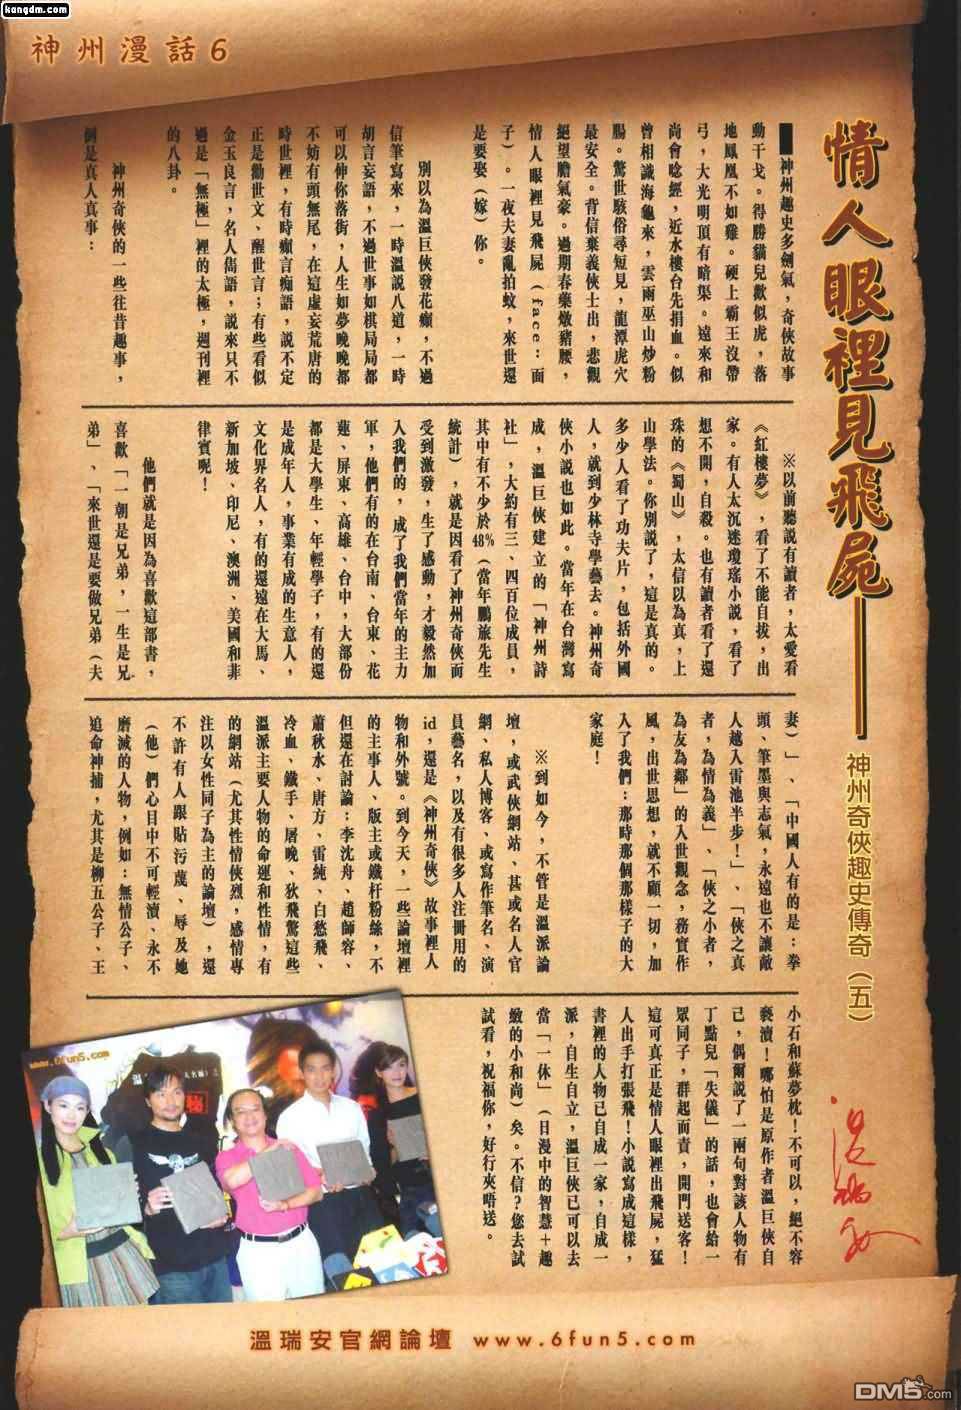 kangdm.com
神州漫話6
情人眼裡見飛屍——神州奇俠趣史傳奇(五)
神州趣史多劍氣，奇俠故事
動干戈。得勝貓兒歡似虎，落
地鳳凰不如雞。硬上霸王沒帶
弓，大光明頂有暗渠。遠來和
尚會唸經，近水樓台先捐血。似
曾相識海龜來，雲雨巫山炒粉
腸。驚世駭俗尋短見，龍潭虎穴
最安全。背信棄義俠士出，悲觀
絕望膽氣豪。過期春藥燉豬腰，
情人眼裡見飛屍（face：面
子）。一夜夫妻亂拍蚊，來世還
是要娶（嫁）你。
別以為溫巨俠發花癲，不過
信筆寫來，一時溫說八道，一時
胡言妄語，不過世事如棋局局都
可以伸你落街，人生如夢晚晚都
不妨有頭無尾，在這虛妄荒唐的
時世裡，有時癲言痴語，說不定
正是勸世文、醒世言；有些看似
金玉良言，名人雋語，說來只不
過是「無極」裡的太極，週刊裡
的八卦。
神州奇俠的一些往昔趣事，
倒是真人真事：
※以前聽說有讀者，太愛看
《紅樓夢》，看了不能自拔，出
家。有人太沉迷瓊瑤小說，看了
想不開，自殺。也有讀者看了還
珠的《蜀山》，太信以為真，上
山學法。你別說了，這是真的。
多少人看了功夫片，包括外國
人，就到少林寺學藝去。神州奇
俠小說也如此。當年在台灣寫
成，溫巨俠建立的「神州詩
社」，大約有三、四百位成員，
其中有不少於48%（當年鵬旅先生
統計），就是因看了神州奇俠而
受到激發，生了感動，才毅然加
入我們的，成了我們當年的主力
軍，他們有的在台南、台東、花
蓮、屏東、高雄、台中，大部份
都是大學生、年輕學子，有的還
是成年人，事業有成的生意人，
文化界名人，有的還遠在大馬、
新加坡、印尼、澳洲、美國和菲
律賓呢！
他們就是因為喜歡這部書，
喜歡「一朝是兄弟，一生是兄
弟」、「來世還是要做兄弟（夫
妻）」、「中國人有的是：拳
頭、筆墨與志氣，永遠也不讓敵
人越入雷池半步！」、「俠之真
者，為情為義」、「俠之小者，
為友為鄰」的入世觀念，務實作
風，出世思想，就不顧一切，加
入了我們：那時那個那樣子的大
家庭！
※到如今，不管是溫派論
壇，或武俠網站、甚或名人官
網、私人博客、或寫作筆名、演
員藝名，以及有很多人注冊用的
id，還是《神州奇俠》故事裡人
物和外號。到今天，一些論壇裡
的主事人、版主或鐵杆粉絲，不
但還在討論：李沈舟、趙師容、
蕭秋水、唐方、雷純、白愁飛、
冷血、鐵手、屠晚、狄飛驚這些
溫派主要人物的命運和性情，有
的網站（尤其性情俠烈，感情專
注以女性同子為主的論壇），還
不許有人跟貼污蔑、辱及她
（他）們心目中不可輕瀆、永不
磨滅的人物，例如：無情公子、
追命神捕，尤其是柳五公子、王
小石和蘇夢枕！不可以，絕不容
褻瀆！哪怕是原作者溫巨俠自
己，偶爾說了一兩句對該人物有
丁點兒「失儀」的話，也會給一
眾同子，群起而責，開門送客！
這可真正是情人眼裡出飛屍，猛
人出手打張飛！小說寫成這樣，
書裡的人物已自成一家，自成一
派，自生自立，溫巨俠已可以去
當「一休」（日漫中的智慧＋趣
緻的小和尚）矣。不信？您去試
試看，祝福你，好行夾唔送。
溫瑞安
www.6fun5.com
溫瑞安官網論壇 www.6fun5.com
DM5.com